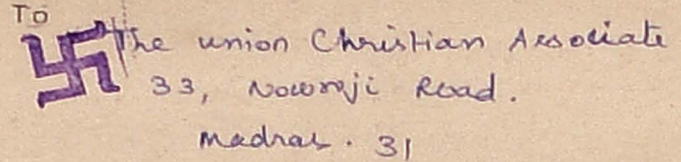 To
The union Christian Associate
33, Nowroji Road.
Madras. 31